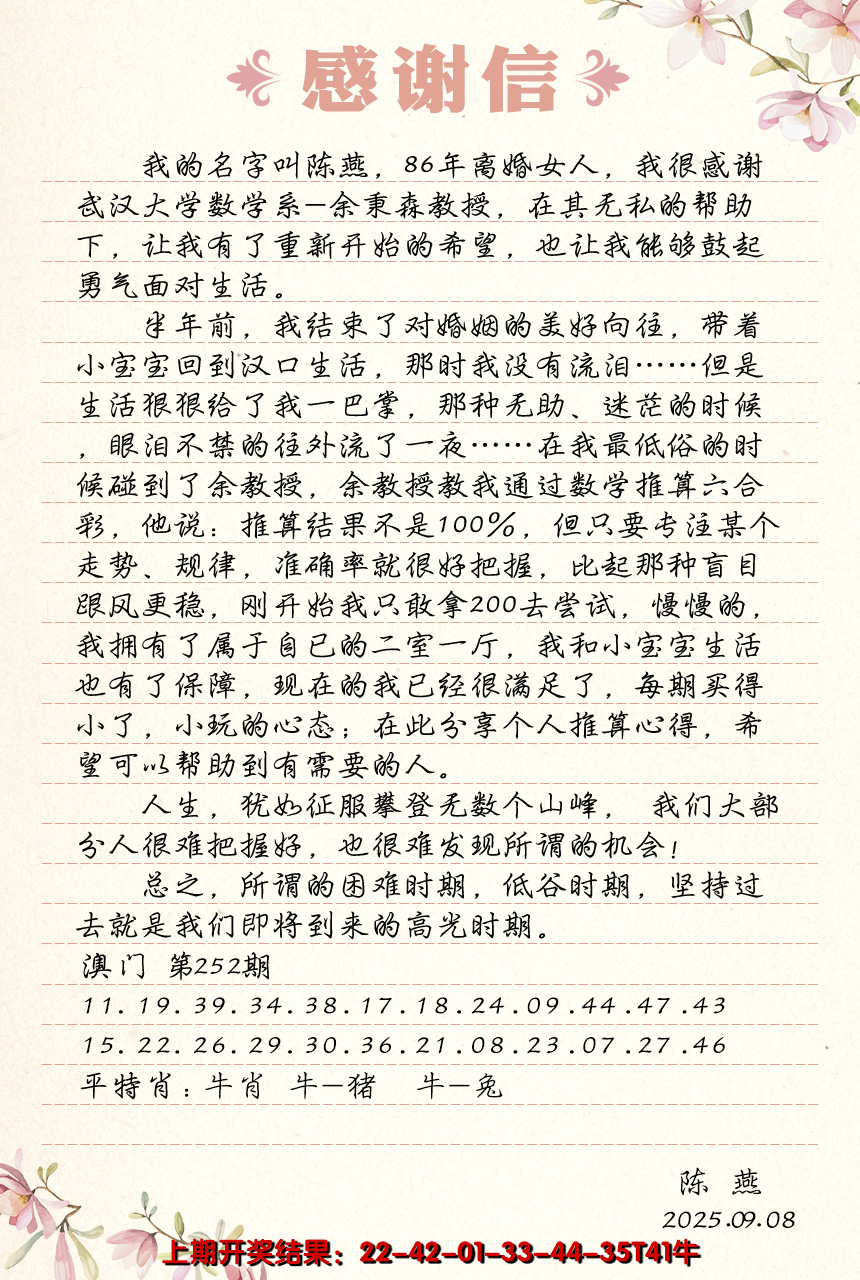 感谢信
我的名字叫陈燕，86年离婚女人，我很感谢
武汉大学数学系—余秉森教授，在其无私的帮助
下，让我有了重新开始的希望，也让我能够鼓起
勇气面对生活。
半年前，我结束了对婚姻的美好向往，带着
小宝宝回到汉口生活，那时我没有流泪……但是
生活狠狠给了我一巴掌，那种无助、迷茫的时候
，眼泪不禁的往外流了一夜……在我最低俗的时
候碰到了余教授，余教授教我通过数学推算六合
彩，他说：推算结果不是100%，但只要专注某个
走势、规律，准确率就很好把握，比起那种盲目
跟风更稳，刚开始我只敢拿200去尝试，慢慢的，
我拥有了属于自已的二室一厅，我和小宝宝生活
也有了保障，现在的我已经很满足了，每期买得
小了，小玩的心态；在此分享个人推算心得，希
望可以帮助到有需要的人。
人生，犹如征服攀登无数个山峰， 我们大部
分人很难把握好，也很难发现所谓的机会！
总之，所谓的困难时期，低谷时期，坚持过
去就是我们即将到来的高光时期。
澳门 第252期
11.19.39.34.38.17.18.24.09.44.47.43
15.22.26.29.30.36.21.08.23.07.27.46
平特肖：牛肖 牛—猪 牛—兔
陈 燕
2025.09.08
上期开奖结果：22-42-01-33-44-35T41牛